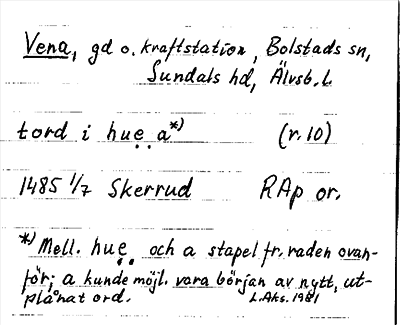 Vena, gd o. kraftstation, Bolstads sn,
Sundals hd, Älvsb. l.
tord i huẹ ạ *) (r. 10)
1485 1/7 Skerrud RAp or.
*) Mell. huẹ och a stapel fr. raden ovan-
för; a kunde möjl. vara början av nytt, ut-
plånat ord. L.Aks. 1981